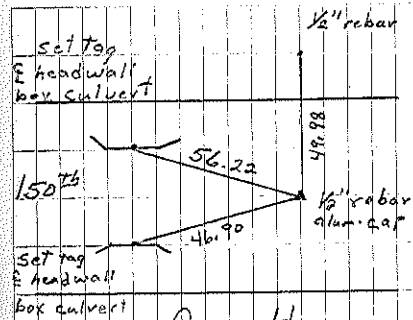 ½" rebar
set tag
℄ headwall
box culvert
49.98
56.22
150th
½" rebar
alum. cap
46.90
set tag
℄ headwall
box culvert